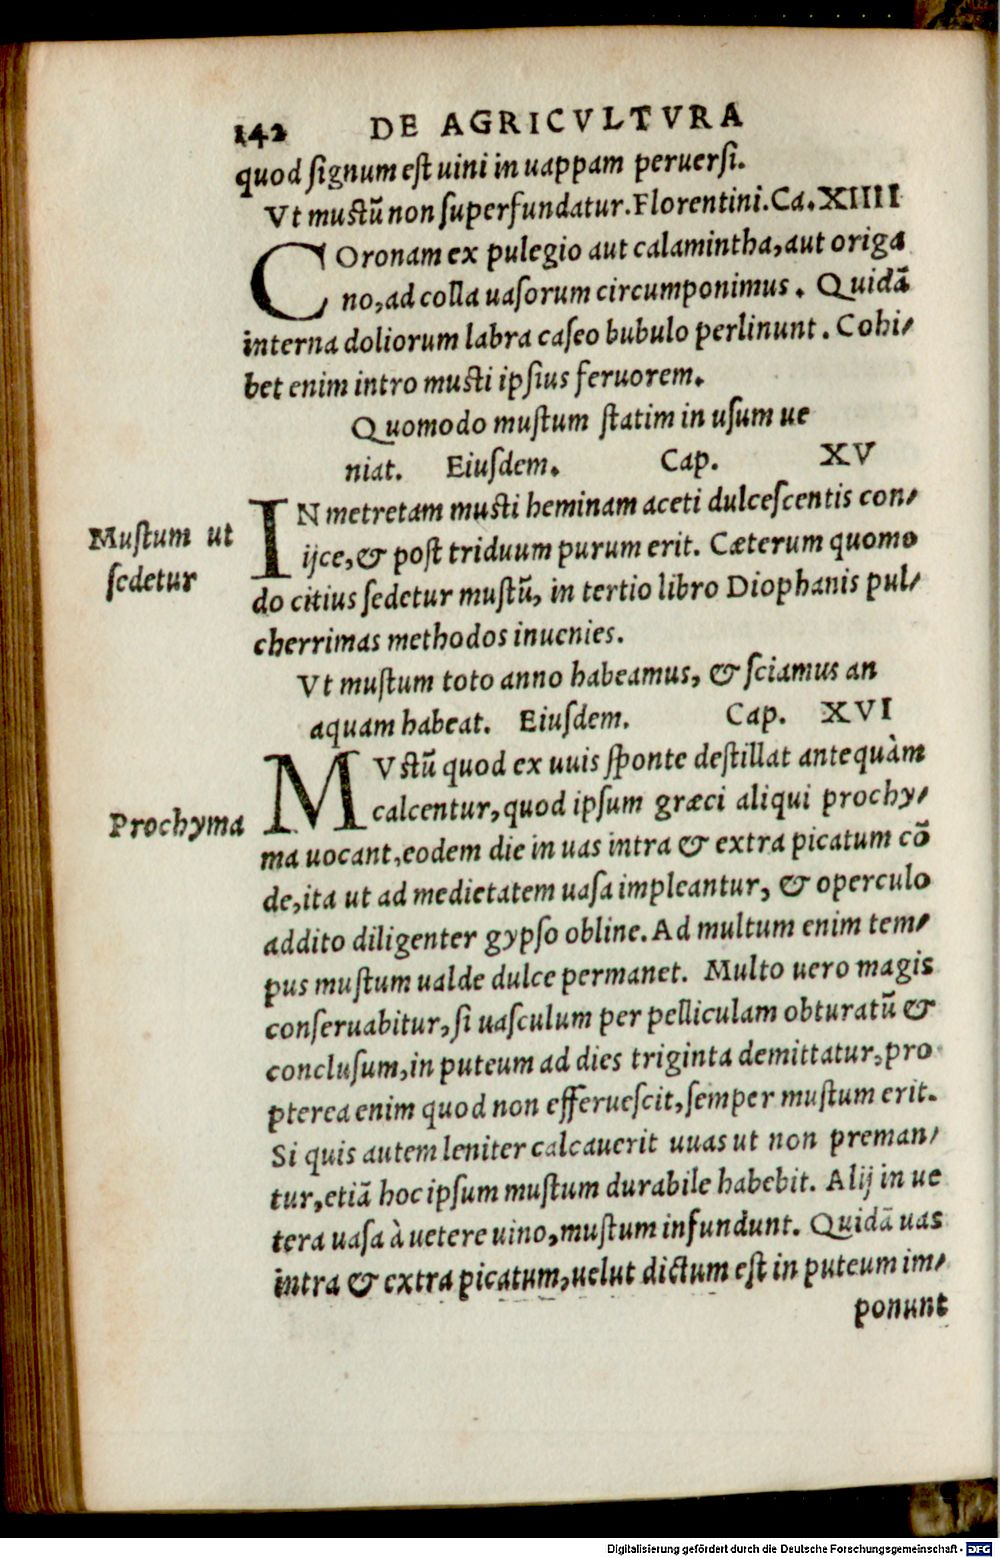 142 DE AGRICVLTVRA
quod ſignum eſt uini in uappam peruerſi.
Vt muſtũ non ſuperfundatur. Florentini. Ca. XIIII
COronam ex pulegio aut calamintha, aut origa
no, ad colla uaſorum circumponimus. Quidã
interna doliorum labra caſeo bubulo perlinunt. Cohi-
bet enim intro muſti ipſius feruorem.
Quomodo muſtum ſtatim in uſum ue
niat. Eiuſdem. Cap. XV
Muſtum ut
ſedetur
IN metretam muſti heminam aceti dulceſcentis con-
ijce, & poſt triduum purum erit. Cæterum quomo
do citius ſedetur muſtũ, in tertio libro Diophanis pul-
cherrimas methodos inuenies.
Vt muſtum toto anno habeamus, & ſciamus an
aquam habeat. Eiuſdem. Cap. XVI
Prochyma
MVſtũ quod ex uuis ſponte deſtillat antequàm
calcentur, quod ipſum græci aliqui prochy-
ma uocant, eodem die in uas intra & extra picatum cõ
de, ita ut ad medietatem uaſa impleantur, & operculo
addito diligenter gypſo obline. Ad multum enim tem-
pus muſtum ualde dulce permanet. Multo uero magis
conſeruabitur, ſi uaſculum per pelliculam obturatũ &
concluſum, in puteum ad dies triginta demittatur, pro
pterea enim quod non efferueſcit, ſemper muſtum erit.
Si quis autem leniter calcauerit uuas ut non preman-
tur, etiã hoc ipſum muſtum durabile habebit. Alij in ue
tera uaſa à uetere uino, muſtum infundunt. Quidã uas
intra & extra picatum, uelut dictum eſt in puteum im-
ponunt
Digitalisierung gefördert durch die Deutsche Forschungsgemeinschaft - DFG